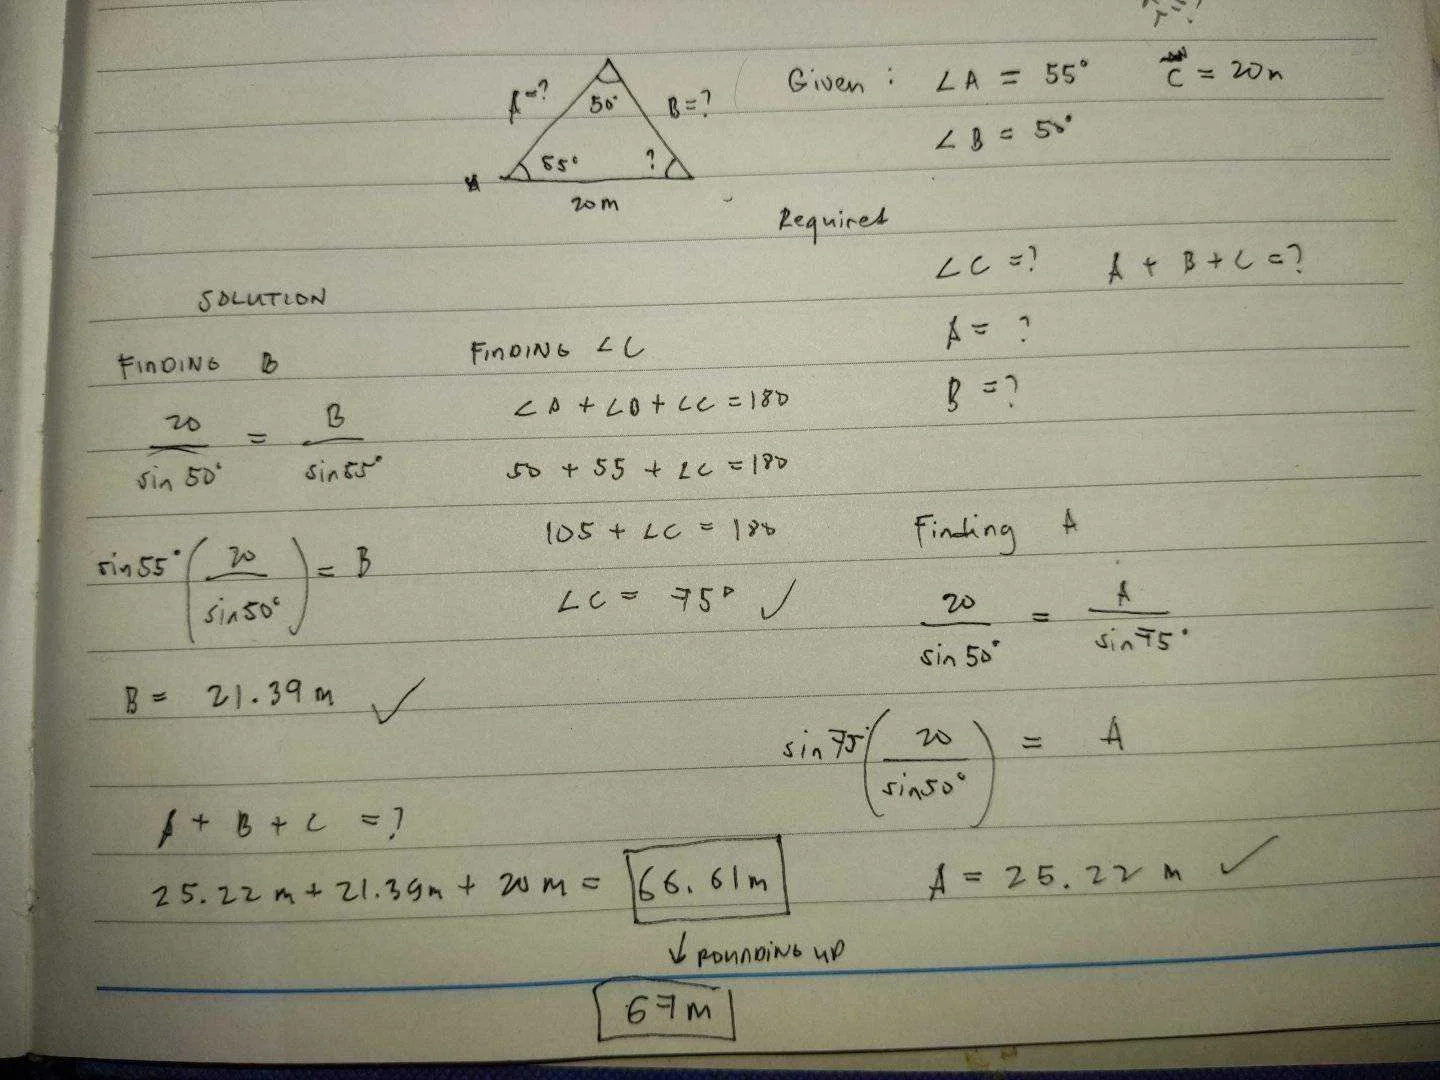 A=?
50°
B=?
55°
?
20m
Given : ∠A = 55° C = 20m
∠B = 50°
Required
∠C =? A + B + C =?
A = ?
B = ?
SOLUTION
FINDING B
20/sin 50° = B/sin 55°
sin 55° (20/sin 50°) = B
B = 21.39 m ✓
FINDING ∠C
∠A + ∠B + ∠C = 180
50 + 55 + ∠C = 180
105 + ∠C = 180
∠C = 75° ✓
Finding A
20/sin 50° = A/sin 75°
sin 75° (20/sin 50°) = A
A = 25.22 m ✓
A + B + C = ?
25.22 m + 21.39m + 20 m = 66.61m
↓ ROUNDING UP
67m